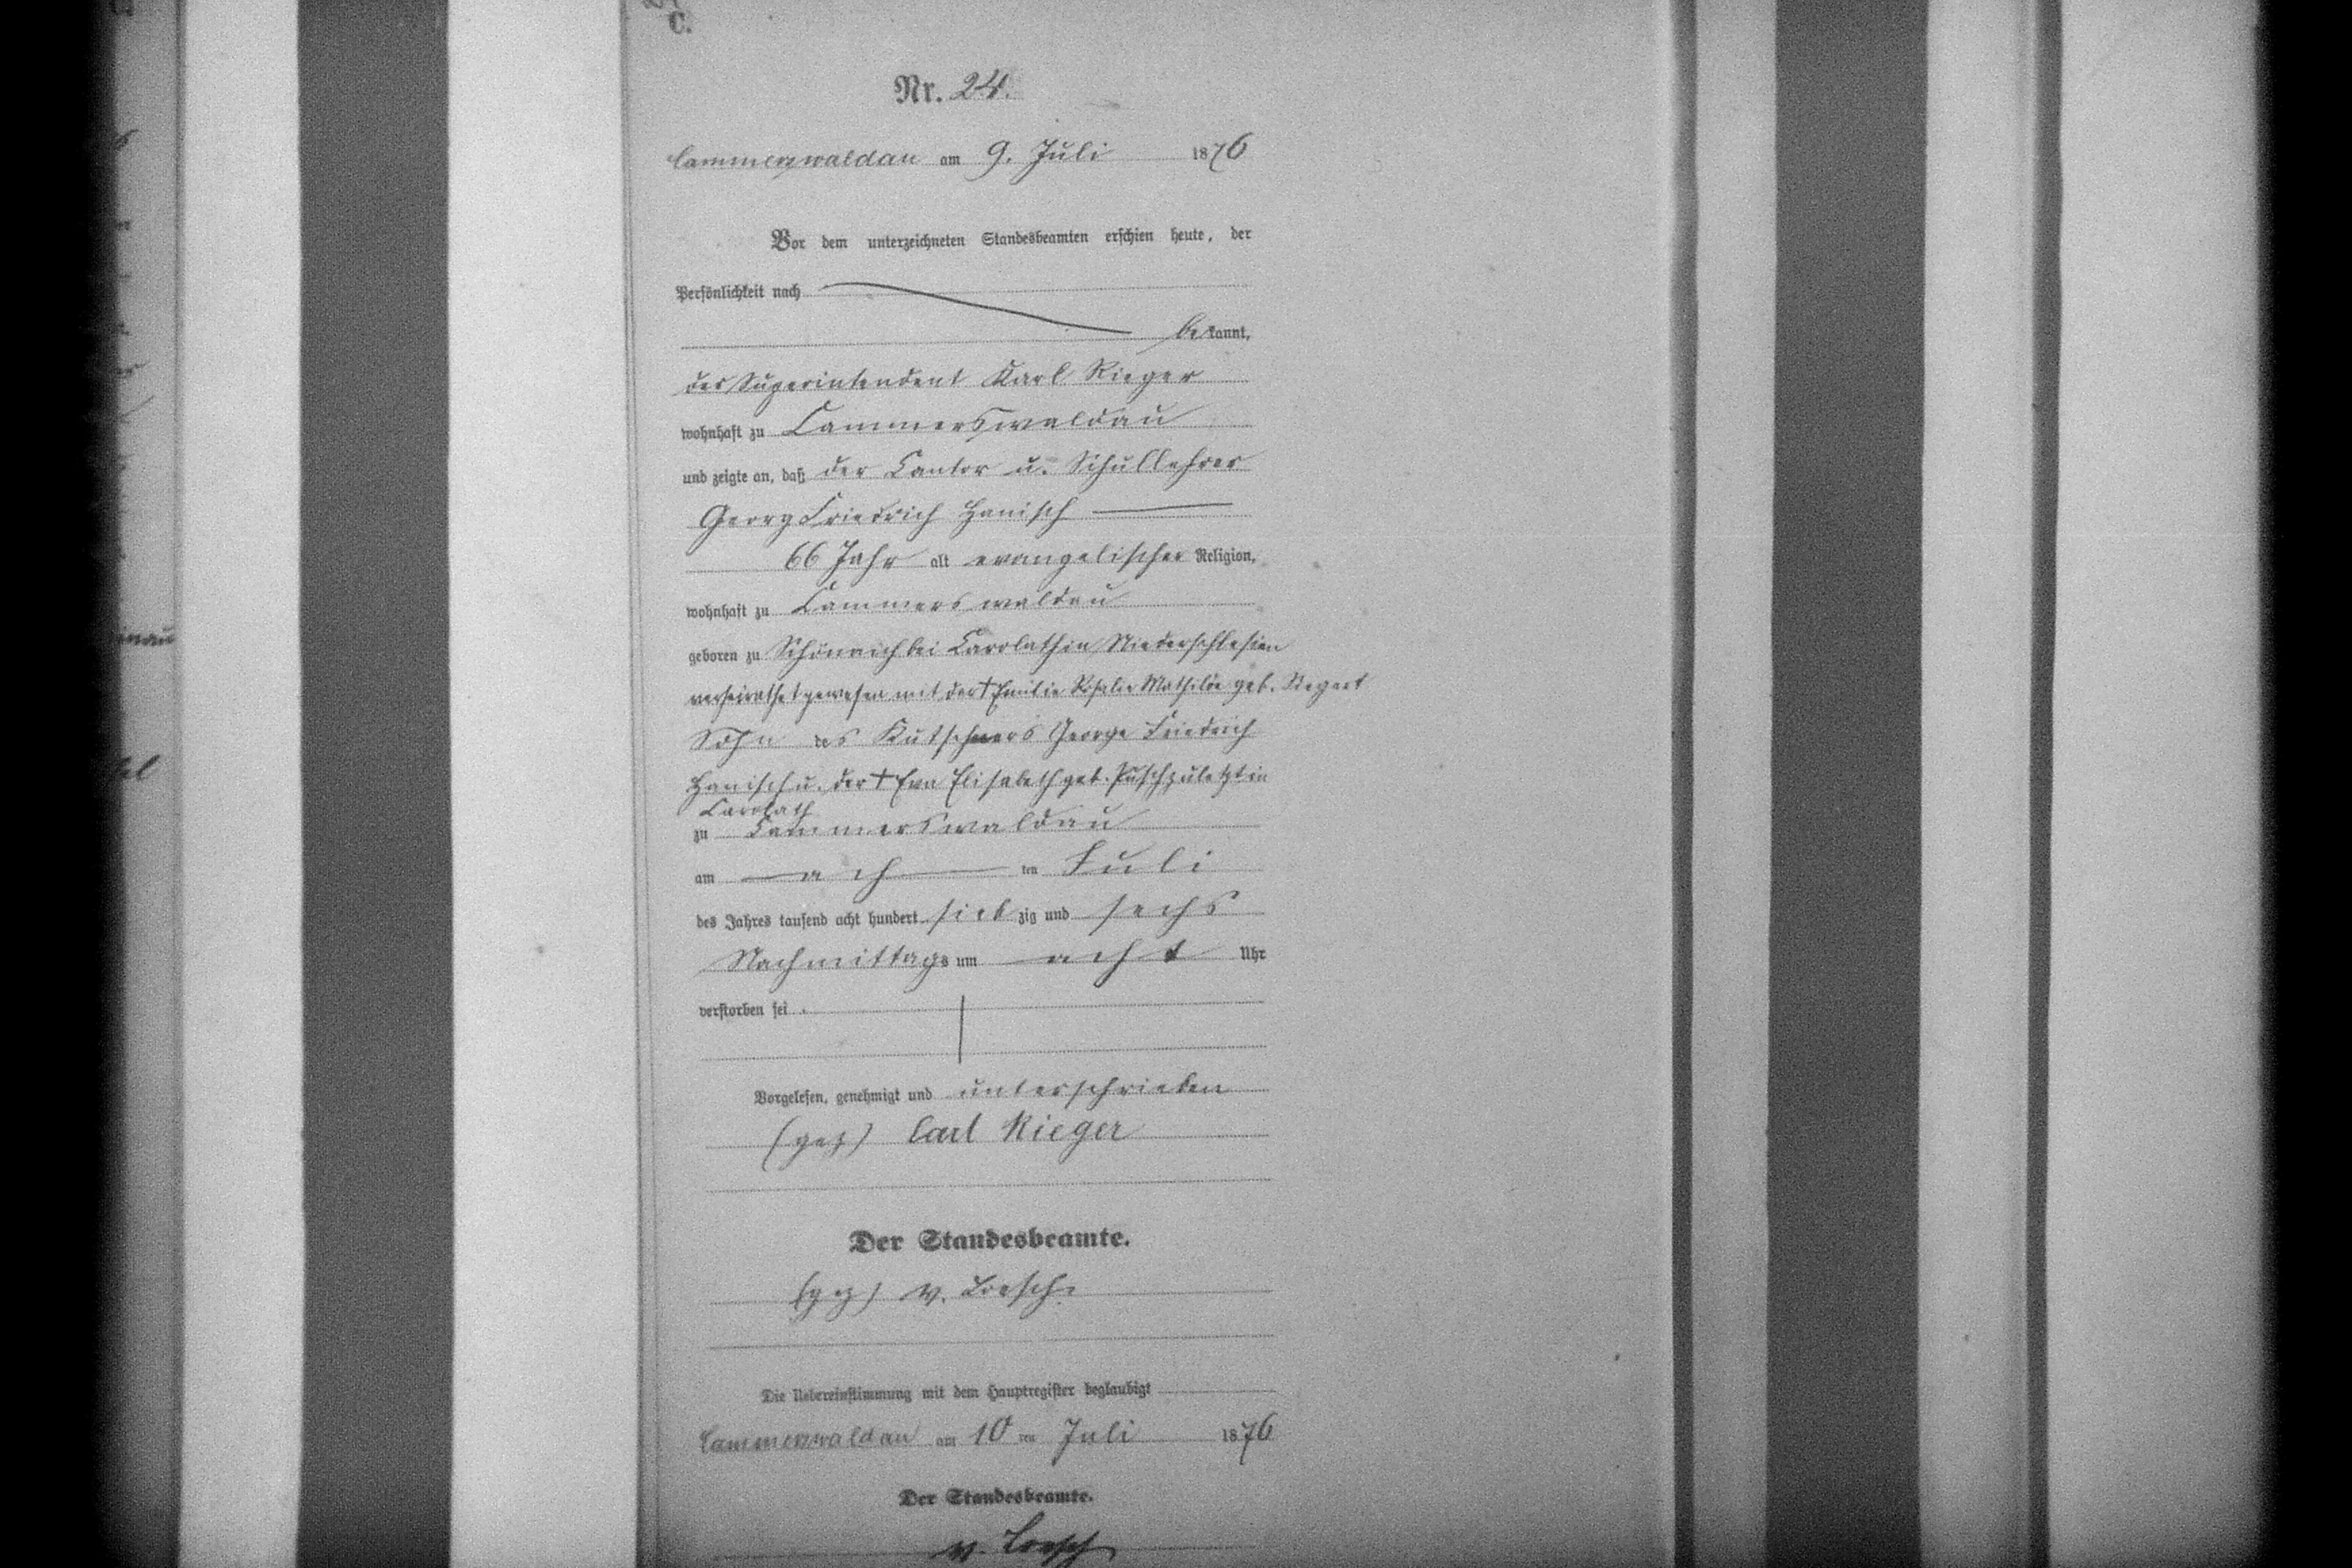 C.
Nr. 24.
Cammerswaldau am 9. Juli 1876
Vor dem unterzeichneten Standesbeamten erschien heute, der
Persönlichkeit nach
bekannt,
der Superintendent Karl Rieger
wohnhaft zu Cammerswaldau
und zeigte an, daß der Cantor u. Schullehrer
Georg Friedrich Hanisch
66 Jahr alt evangelischer Religion,
wohnhaft zu Cammerswaldau
geboren zu Schönaich bei Carolath in Niederschlesien
verheirathet gewesen mit der † Emilie Rosalie Mathilde geb.
Sohn des Kutschners George Friedrich
Hanisch u. der † Eva Elisabeth geb. Pusch zuletzt in
Carolath
zu Cammerswaldau
am ach ten Juli
des Jahres tausend acht hundert sieb zig und sechs
Nachmittags um acht Uhr
verstorben sei.
Vorgelesen, genehmigt und unterschrieben
(gez) Carl Rieger
Der Standesbeamte.
(gez) v. Loesch.
Die Uebereinstimmung mit dem Hauptregister beglaubigt
Cammerswaldau am 10 ten Juli 1876
Der Standesbeamte.
v. Loesch